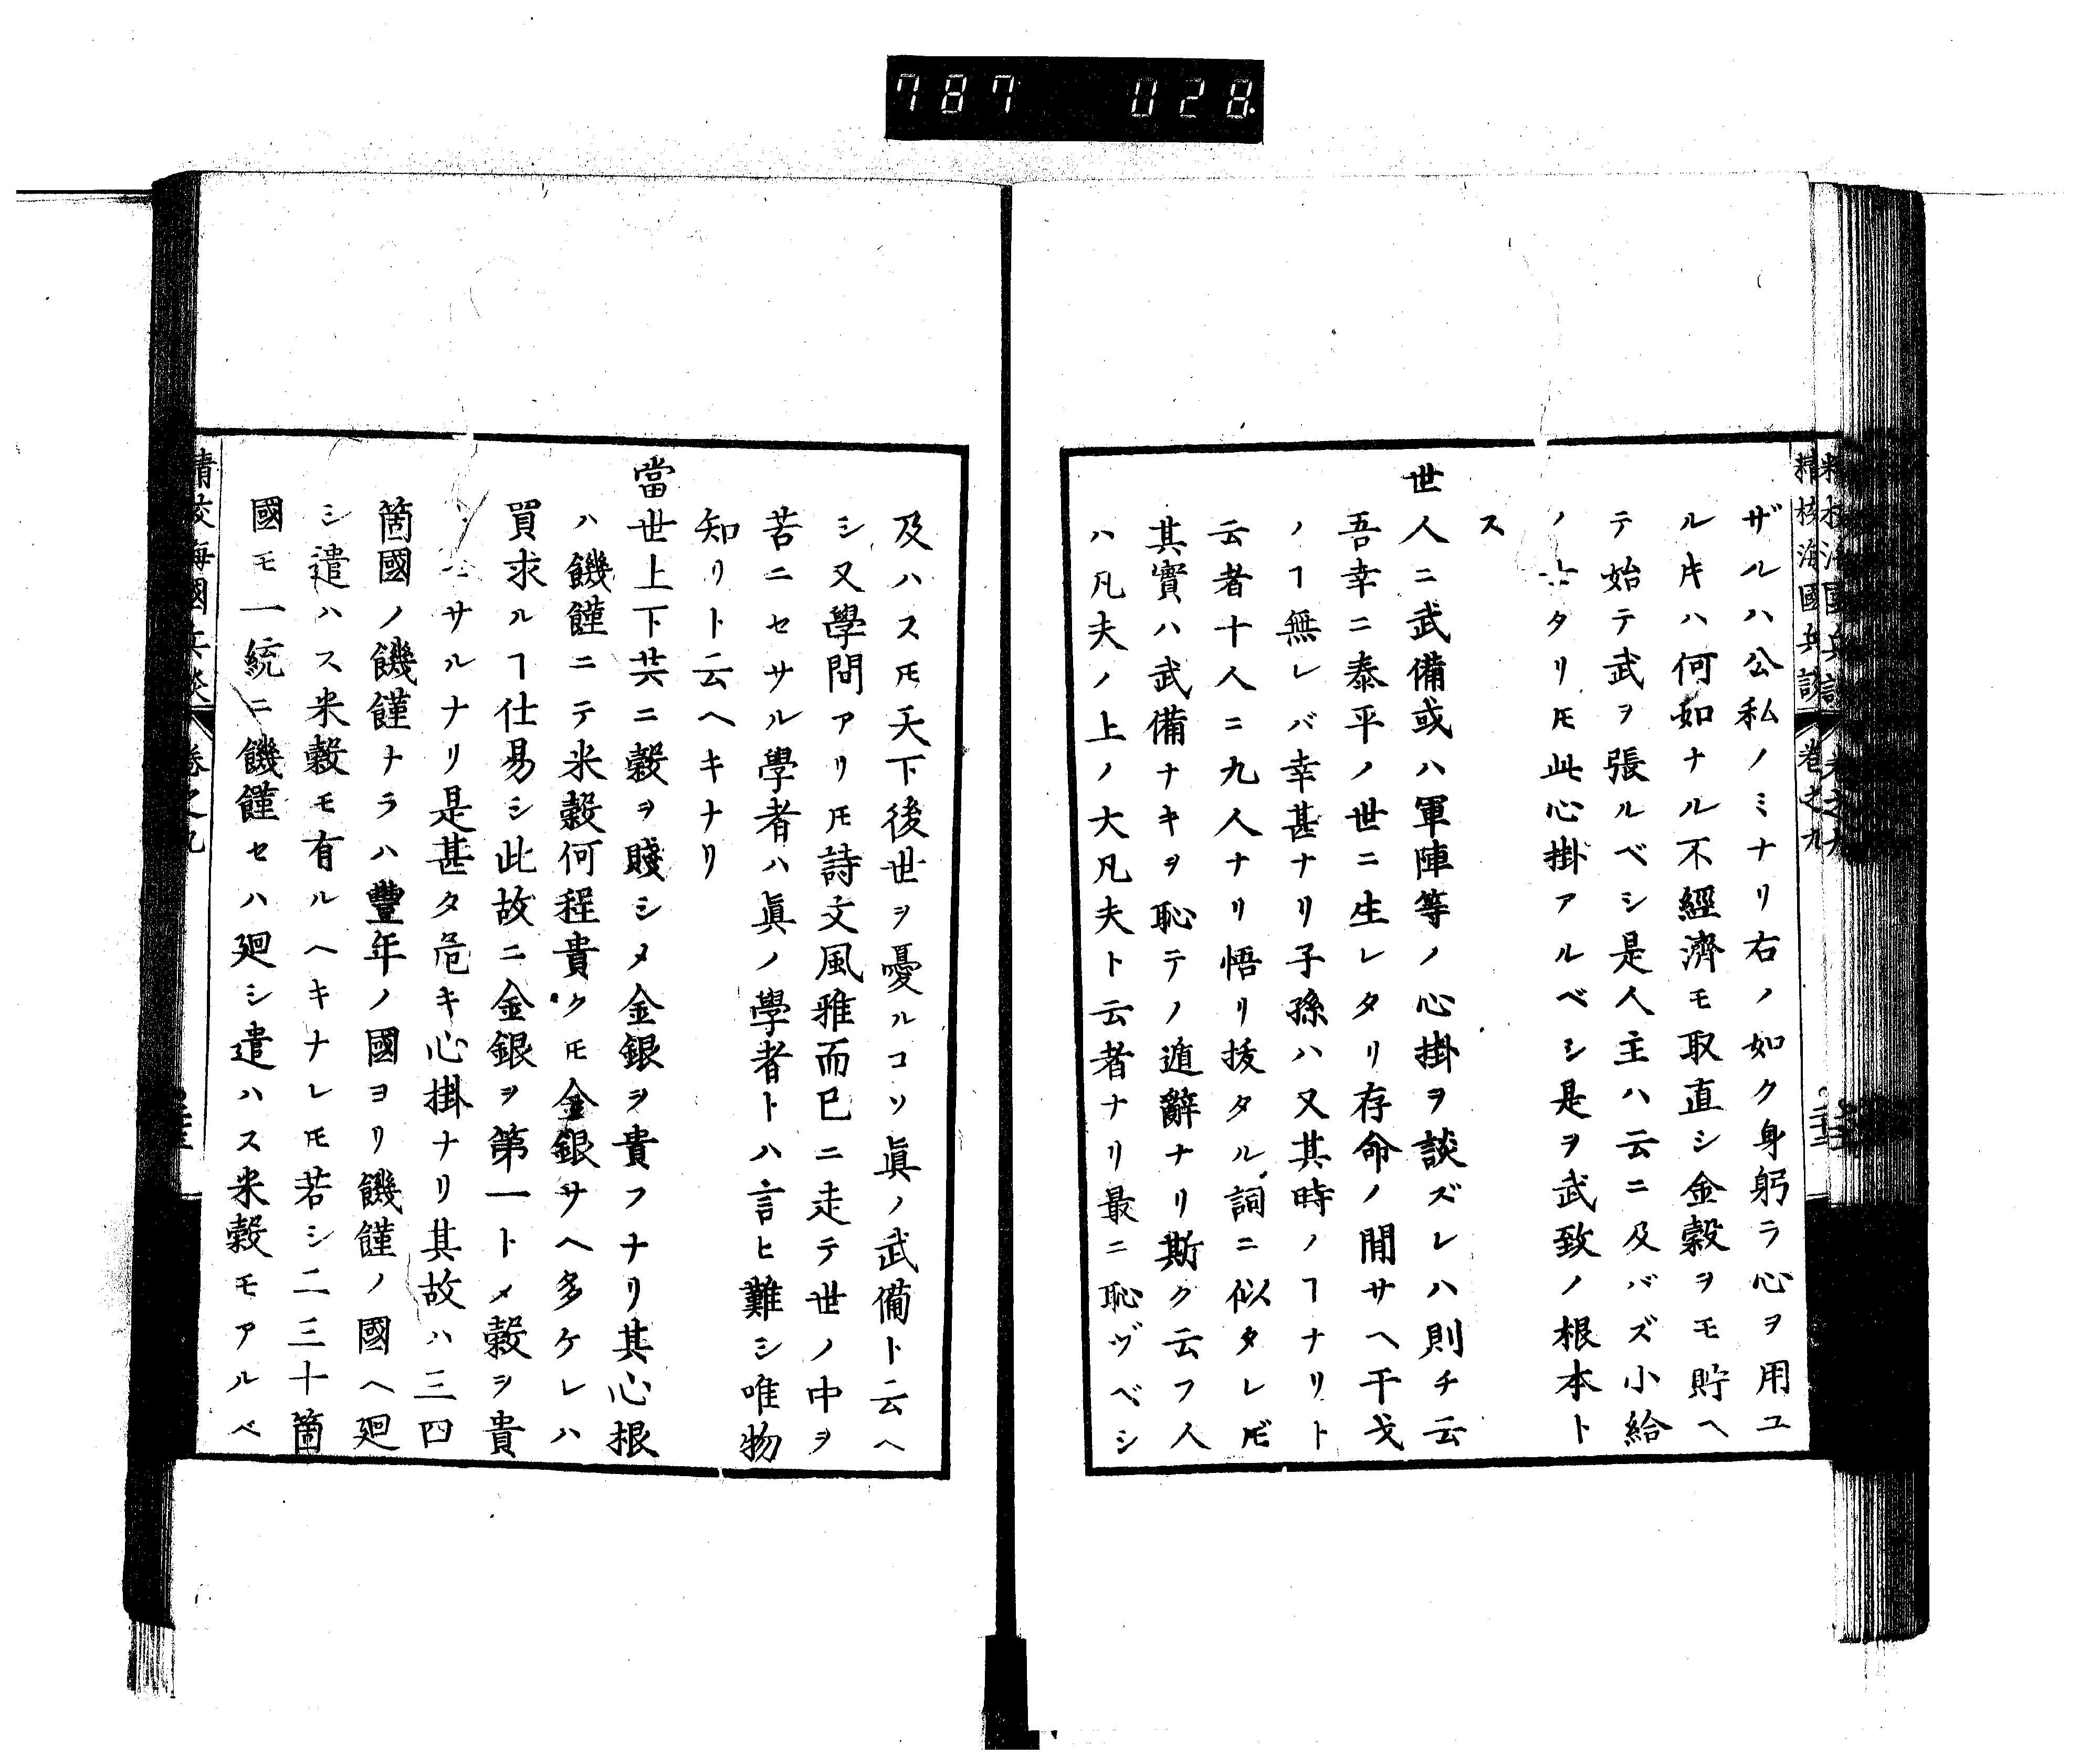 787 028
精校海國兵談 卷之九
ザルハ公私ノミナリ右ノ如ク身躬ラ心ヲ用ユ
ル𪜈ハ何如ナル不經濟モ取直シ金穀ヲモ貯ヘ
テ始テ武ヲ張ルベシ是人主ハ云ニ及バズ小給
ノ士タリ𪜈此心掛アルベシ是ヲ武致ノ根本ト
ス
世人ニ武備或ハ軍陣等ノ心掛ヲ談ズレハ則チ云
吾幸ニ泰平ノ世ニ生レタリ存命ノ間サヘ干戈
ノヿ無レバ幸甚ナリ子孫ハ又其時ノヿナリト
云者十人ニ九人ナリ悟リ拔タル詞ニ似タレ𪜈
其實ハ武備ナキヲ恥テノ遁辭ナリ斯ク云フ人
ハ凡夫ノ上ノ大凡夫ト云者ナリ最ニ恥ヅベシ
及ハス𪜈天下後世ヲ憂ルコソ眞ノ武備ト云ヘ
シ又學問アリ𪜈詩文風雅而已ニ走テ世ノ中ヲ
苦ニセサル學者ハ眞ノ學者トハ言ヒ難シ唯物
知リト云ヘキナリ
當世上下共ニ穀ヲ賤シメ金銀ヲ貴フナリ其心根
ハ饑饉ニテ米穀何程貴クモ金銀サヘ多ケレハ
買求ルヿ仕易シ此故ニ金銀ヲ第一トメ穀ヲ貴
サルナリ是甚タ危キ心掛ナリ其故ハ三四
箇國ノ饑饉ナラハ豐年ノ國ヨリ饑饉ノ國ヘ廻
シ遣ハス米穀モ有ルヘキナレ𪜈若シ二三十箇
國モ一統ニ饑饉セハ廻シ遣ハス米穀モアルベ
精校海國兵談 卷之九